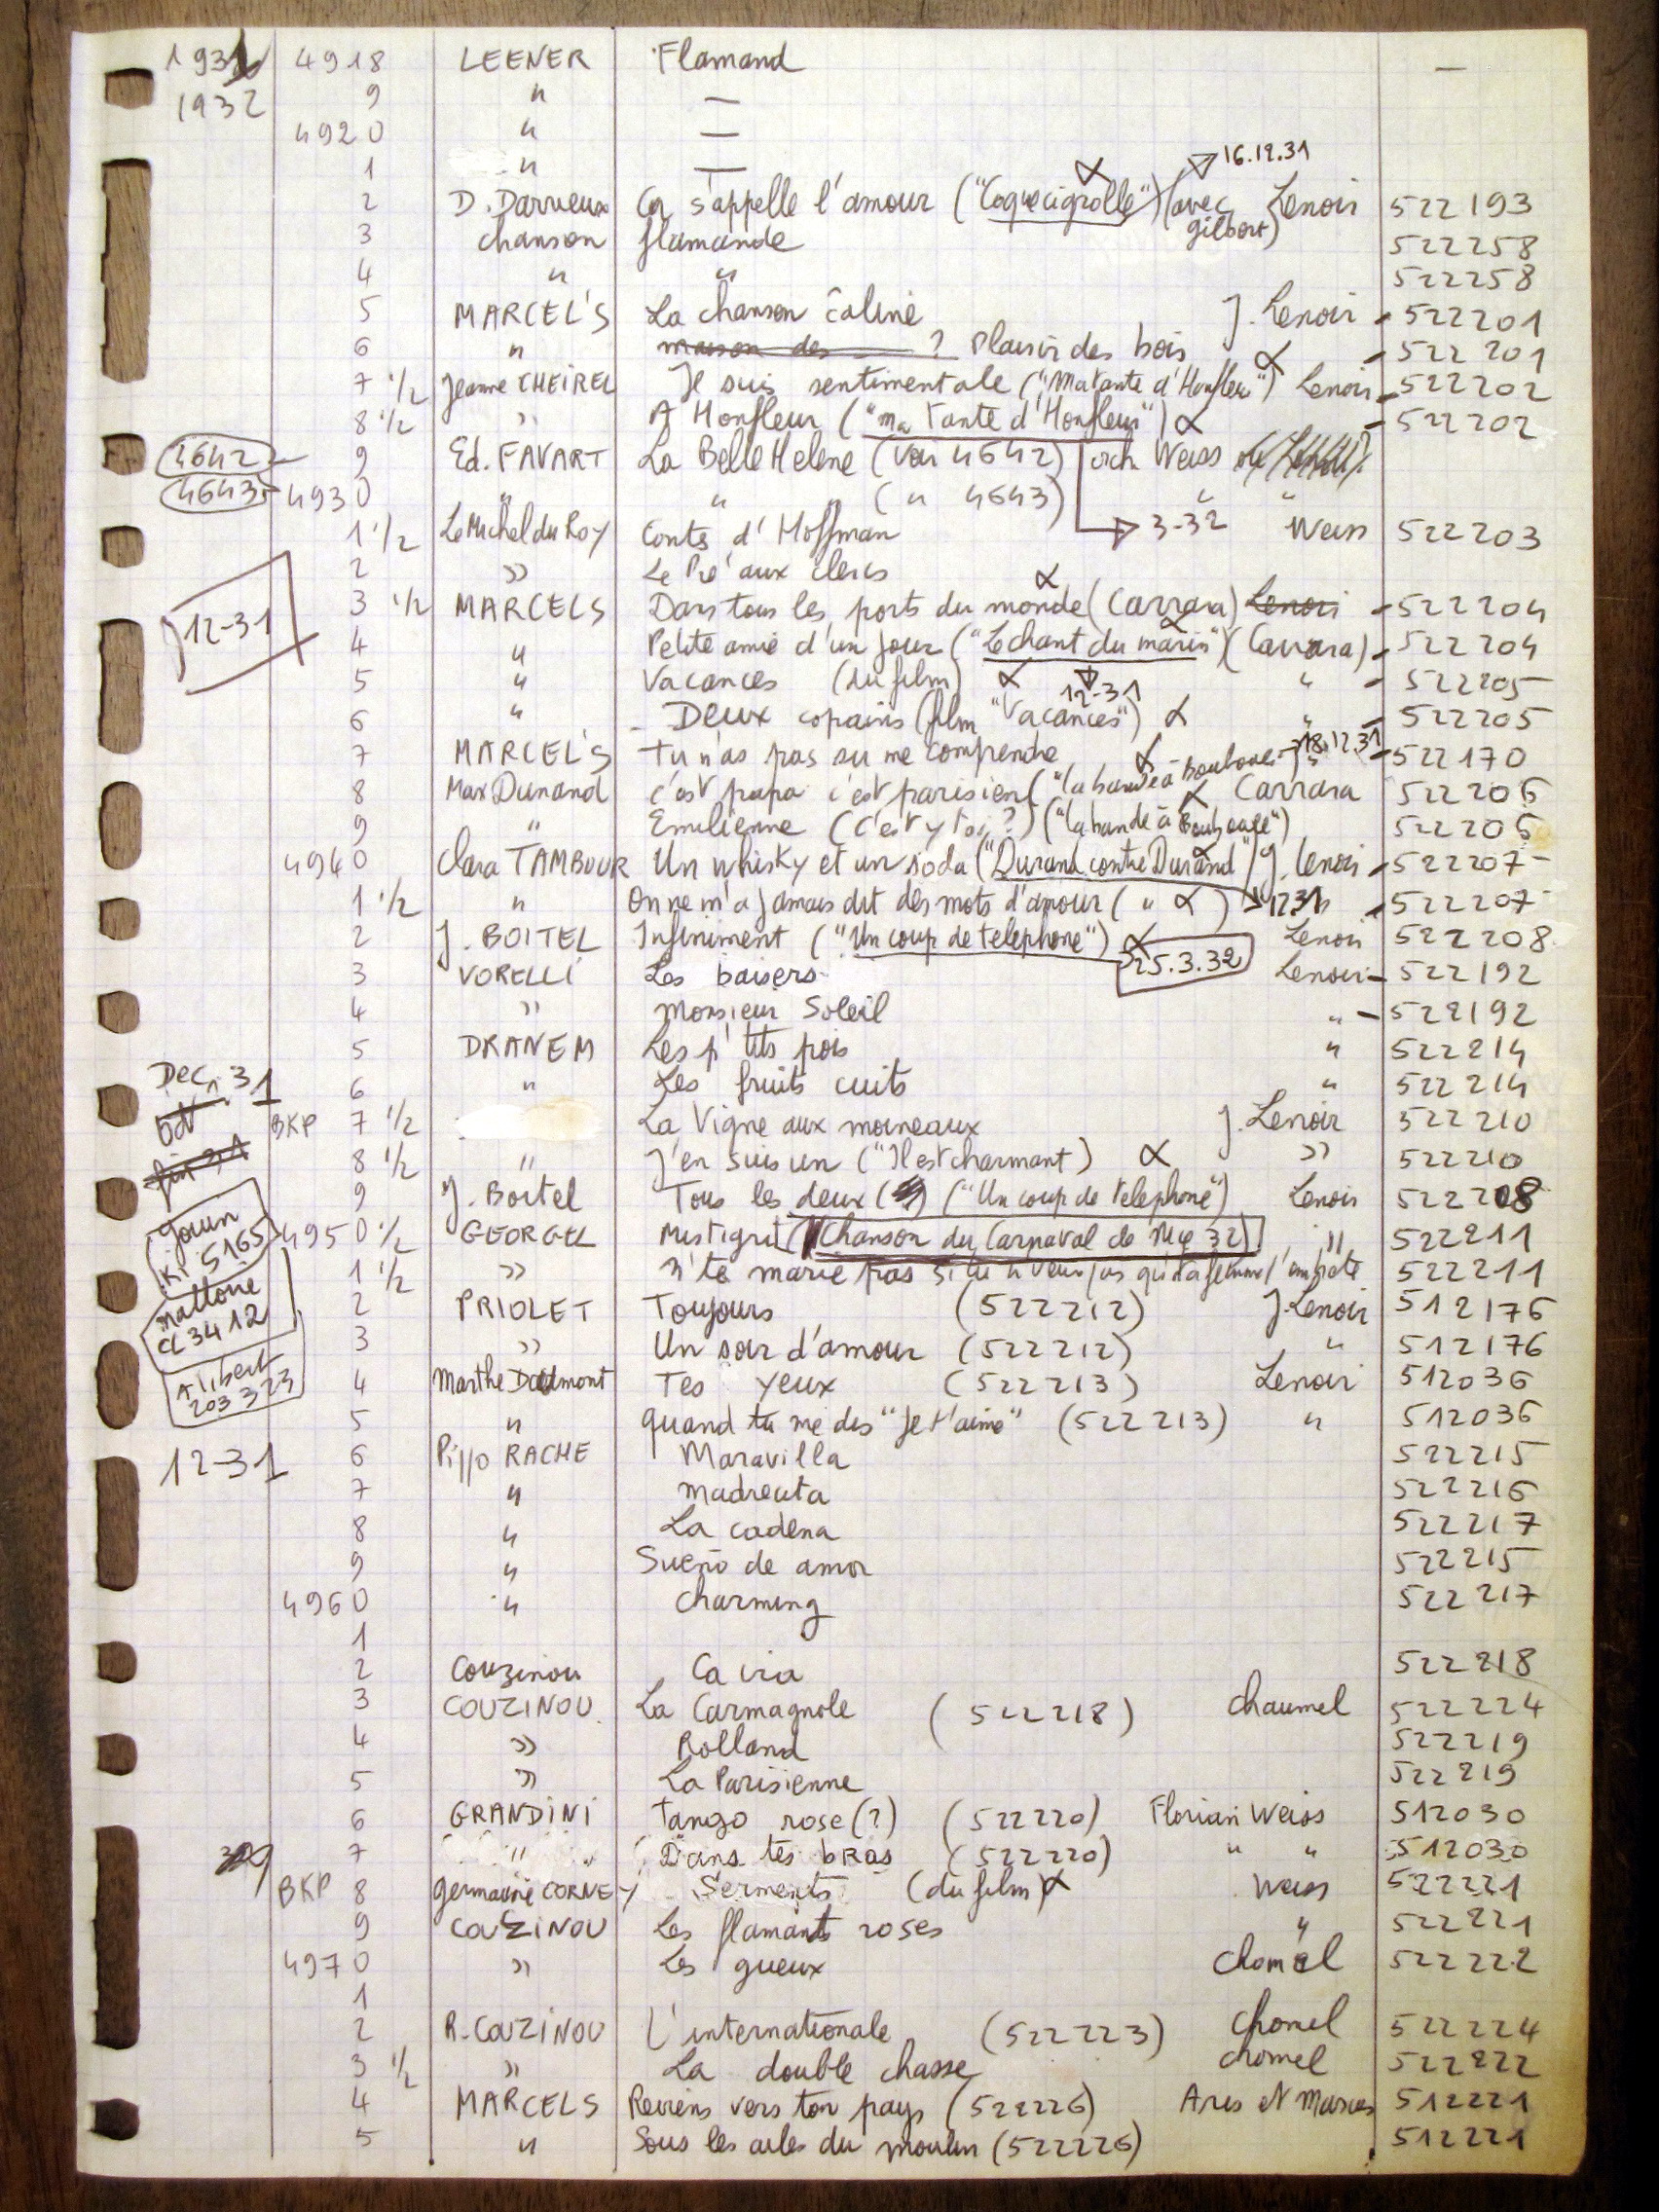 1931 4918 LEENER Flamand —
1932 9 " —
4920 " —
1 " — 16.12.31
2 D. Darrieux Ca s'appelle l'amour ("Coquecigrolle") (avec Gilbert) Lenoir 522193
3 chanson flamande 522258
4 " " 522258
5 MARCEL'S La chanson caline J. Lenoir - 522201
6 " maison des ? Plaisir des bois α - 522201
7 1/2 Jeanne CHEIREL Je suis sentimentale ("Ma tante d'Honfleur") Lenoir - 522202
8 1/2 " A Honfleur ("ma Tante d'Honfleur") α - 522202
4642 9 Ed. FAVART La Belle Helene (voir 4642) orch Weiss
4643 4930 " " (" 4643) " "
1 1/2 Le Michel du Roy Conts d'Hoffman 3-32 Weiss 522203
2 " Le Pré aux clercs
12-31 3 1/2 MARCELS Dans tous les ports du monde (Carrara) Lenoir - 522204
4 " Petite amie d'un jour ("Le chant du marin") (Carrara) - 522204
5 " Vacances (du film) α 12-31 " - 522205
6 " Deux copains (film "Vacances") α " - 522205
7 MARCEL'S Tu n'as pas su me comprendre 18.12.31 - 522170
8 Max Dunand c'est papa c'est parisien ("la bande à Bouboule") Carrara 522206
9 " Emilienne (c'est y toi ?) ("la bande à Bouboule") 522206
4940 Clara TAMBOUR Un whisky et un soda ("Durand contre Durand") J. Lenoir - 522207
1 1/2 " On ne m'a jamais dit des mots d'amour ( " α ) 1231 " - 522207
2 J. BOITEL Infiniment ("Un coup de telephone") α 25.3.32 Lenoir 522208
3 VORELLI Les baisers Lenoir - 522192
4 " Monsieur Soleil " - 522192
5 DRANEM Les p'tits pois " 522214
Dec. 31 6 " Les fruits cuits " 522214
BKP 7 1/2 La Vigne aux moineaux J. Lenoir 522210
8 1/2 " J'en suis un ("Il est charmant") α " 522210
9 J. Boitel Tous les deux ("Un coup de telephone") Lenoir 522208
gouin Ki 5165 4950 1/2 GEORGEL Mistigri (Chanson du Carnaval de Nice 32) " 522211
1 1/2 " N'te marie pas si tu n'veux pas qu'ta femme t'embete 522211
mattone CL 3412 2 PRIOLET Toujours (522212) J. Lenoir 512176
3 " Un soir d'amour (522212) " 512176
Alibert 203323 4 Marthe Daumont Tes yeux (522213) Lenoir 512036
5 " quand tu me dis "Je t'aime" (522213) " 512036
12-31 6 Pippo RACHE Maravilla 522215
7 " madrecita 522216
8 " La cadena 522217
9 " Sueño de amor 522215
4960 " Charming 522217
1
2 Couzinou Ca ira 522218
3 COUZINOU La Carmagnole (522218) Chaumel 522224
4 " Rolland 522219
5 " La Parisienne 522219
6 GRANDINI Tango rose (?) (522220) Florian Weiss 512030
7 " Dans tes bras (522220) " " 512030
BKP 8 germaine CORNEY Serments (du film) α Weiss 522221
9 COUZINOU Les flamants roses " 522221
4970 " Les gueux Chomel 522222
1
2 R. COUZINOU L'internationale (522223) Chomel 522224
3 1/2 " La double chasse chomel 522222
4 MARCELS Reviens vers ton pays (522226) Ares et Marcus 512221
5 " Sous les ailes du moulin (522226) 512221